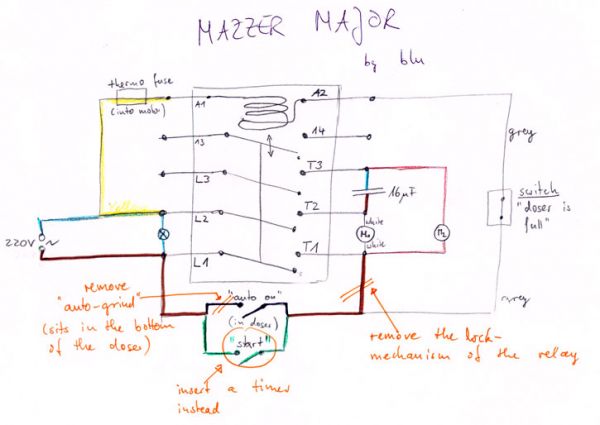 MAZZER MAJOR
by blu
thermo fuse
(into motor)
A1
A2
grey
13
14
L3
T3
16µF
switch
"doser is
full"
yellow
L2
T2
white
220V ~
M1
M2
white
L1
T1
grey
remove
"auto-grind"
(sits in the bottom
of the doser)
"auto on"
(in doser)
"start"
remove the lock-
mechanism of the relay
insert a timer
instead